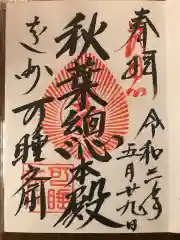 奉拝
令和二年
五月廿九日
秋葉總本殿
遠州可睡斎
可睡